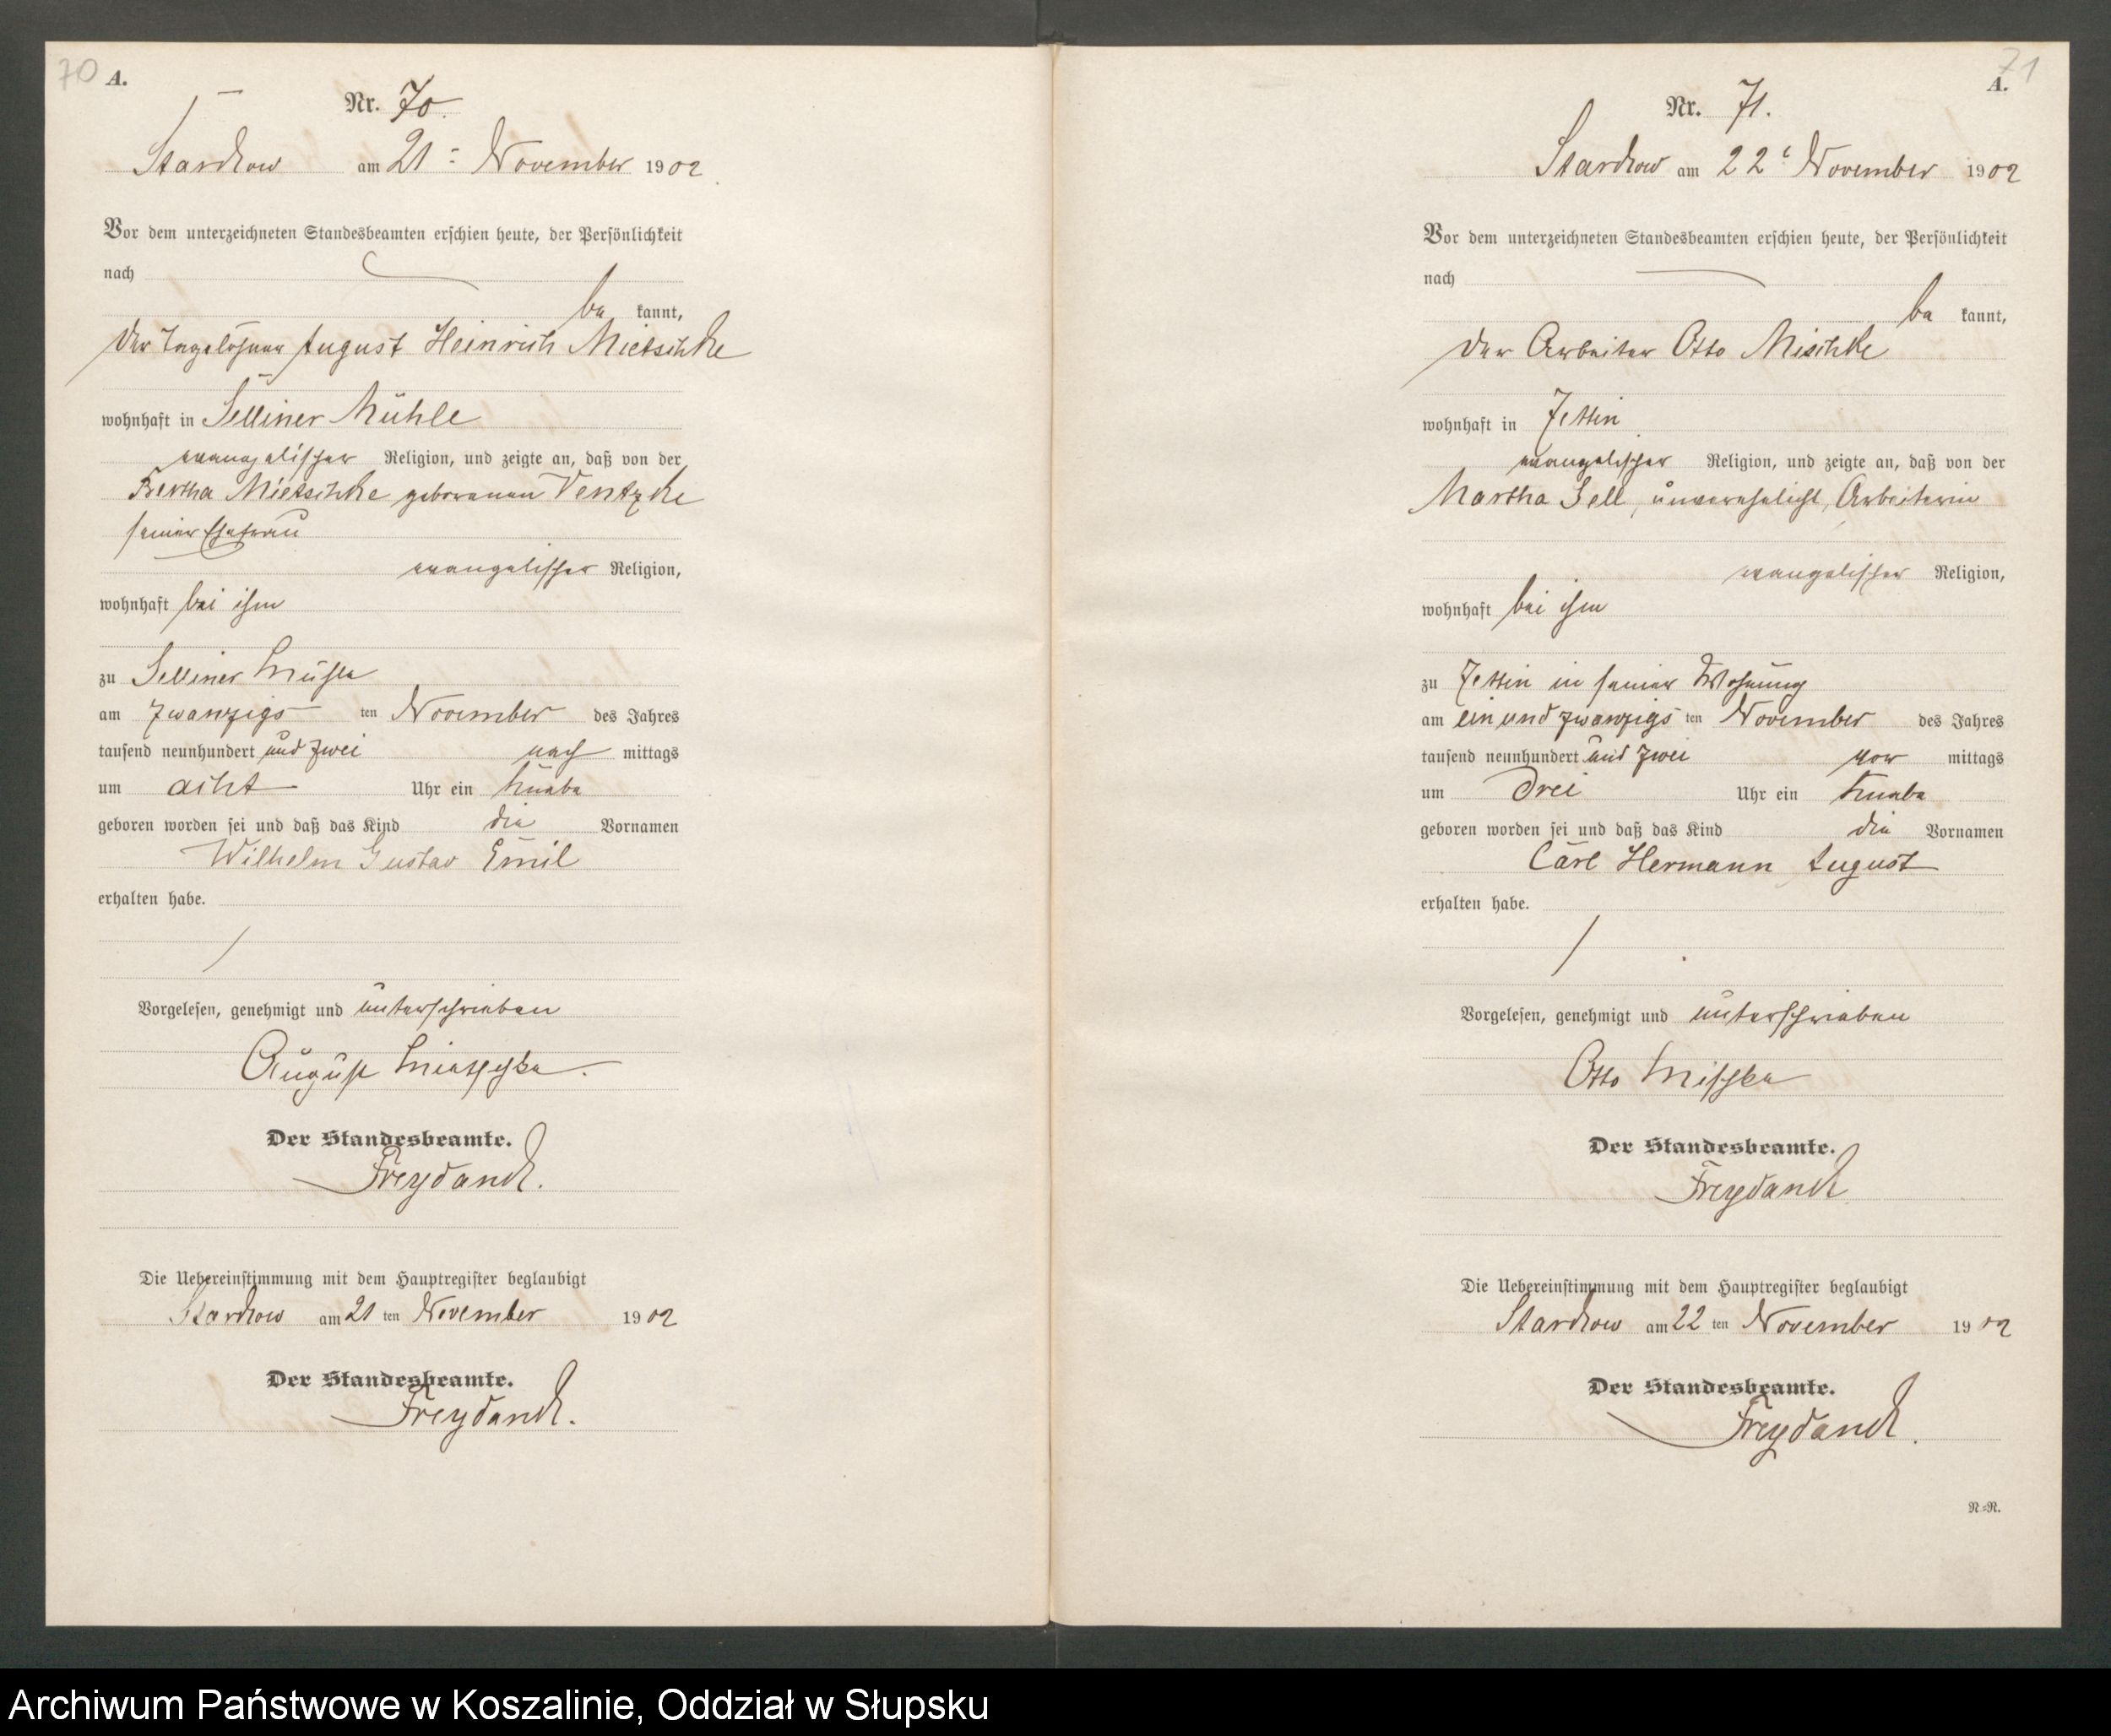 70
A.
Nr. 70.
Starckow am 21 November 1902
Vor dem unterzeichneten Standesbeamten erschien heute, der Persönlichkeit
nach
be kannt,
der Tagelöhner August Heinrich Mietschke
wohnhaft in Selliner Mühle
evangelischer Religion, und zeigte an, daß von der
Bertha Mietschke geborenen Ventzke
seiner Ehefrau
evangelischer Religion,
wohnhaft bei ihm
zu Selliner Mühle
am zwanzigs ten November des Jahres
tausend neunhundert und zwei nach mittags
um acht Uhr ein Knabe
geboren worden sei und daß das Kind die Vornamen
Wilhelm Gustav Emil
erhalten habe.
Vorgelesen, genehmigt und unterschrieben
August Mietschke.
Der Standesbeamte.
Freydanck.
Die Uebereinstimmung mit dem Hauptregister beglaubigt
Starckow am 21 ten November 1902
Der Standesbeamte.
Freydanck.
71
A.
Nr. 71.
Starckow am 22t November 1902
Vor dem unterzeichneten Standesbeamten erschien heute, der Persönlichkeit
nach
be kannt,
der Arbeiter Otto Mischke
wohnhaft in Zettin
evangelischer Religion, und zeigte an, daß von der
Martha Sell, unverehelicht, Arbeiterin
evangelischer Religion,
wohnhaft bei ihm
zu Zettin in seiner Wohnung
am ein und zwanzigs ten November des Jahres
tausend neunhundert und zwei vor mittags
um drei Uhr ein Knabe
geboren worden sei und daß das Kind die Vornamen
Carl Hermann August
erhalten habe.
Vorgelesen, genehmigt und unterschrieben
Otto Mischke
Der Standesbeamte.
Freydanck
Die Uebereinstimmung mit dem Hauptregister beglaubigt
Starckow am 22 ten November 1902
Der Standesbeamte.
Freydanck.
N=R.
Archiwum Państwowe w Koszalinie, Oddział w Słupsku